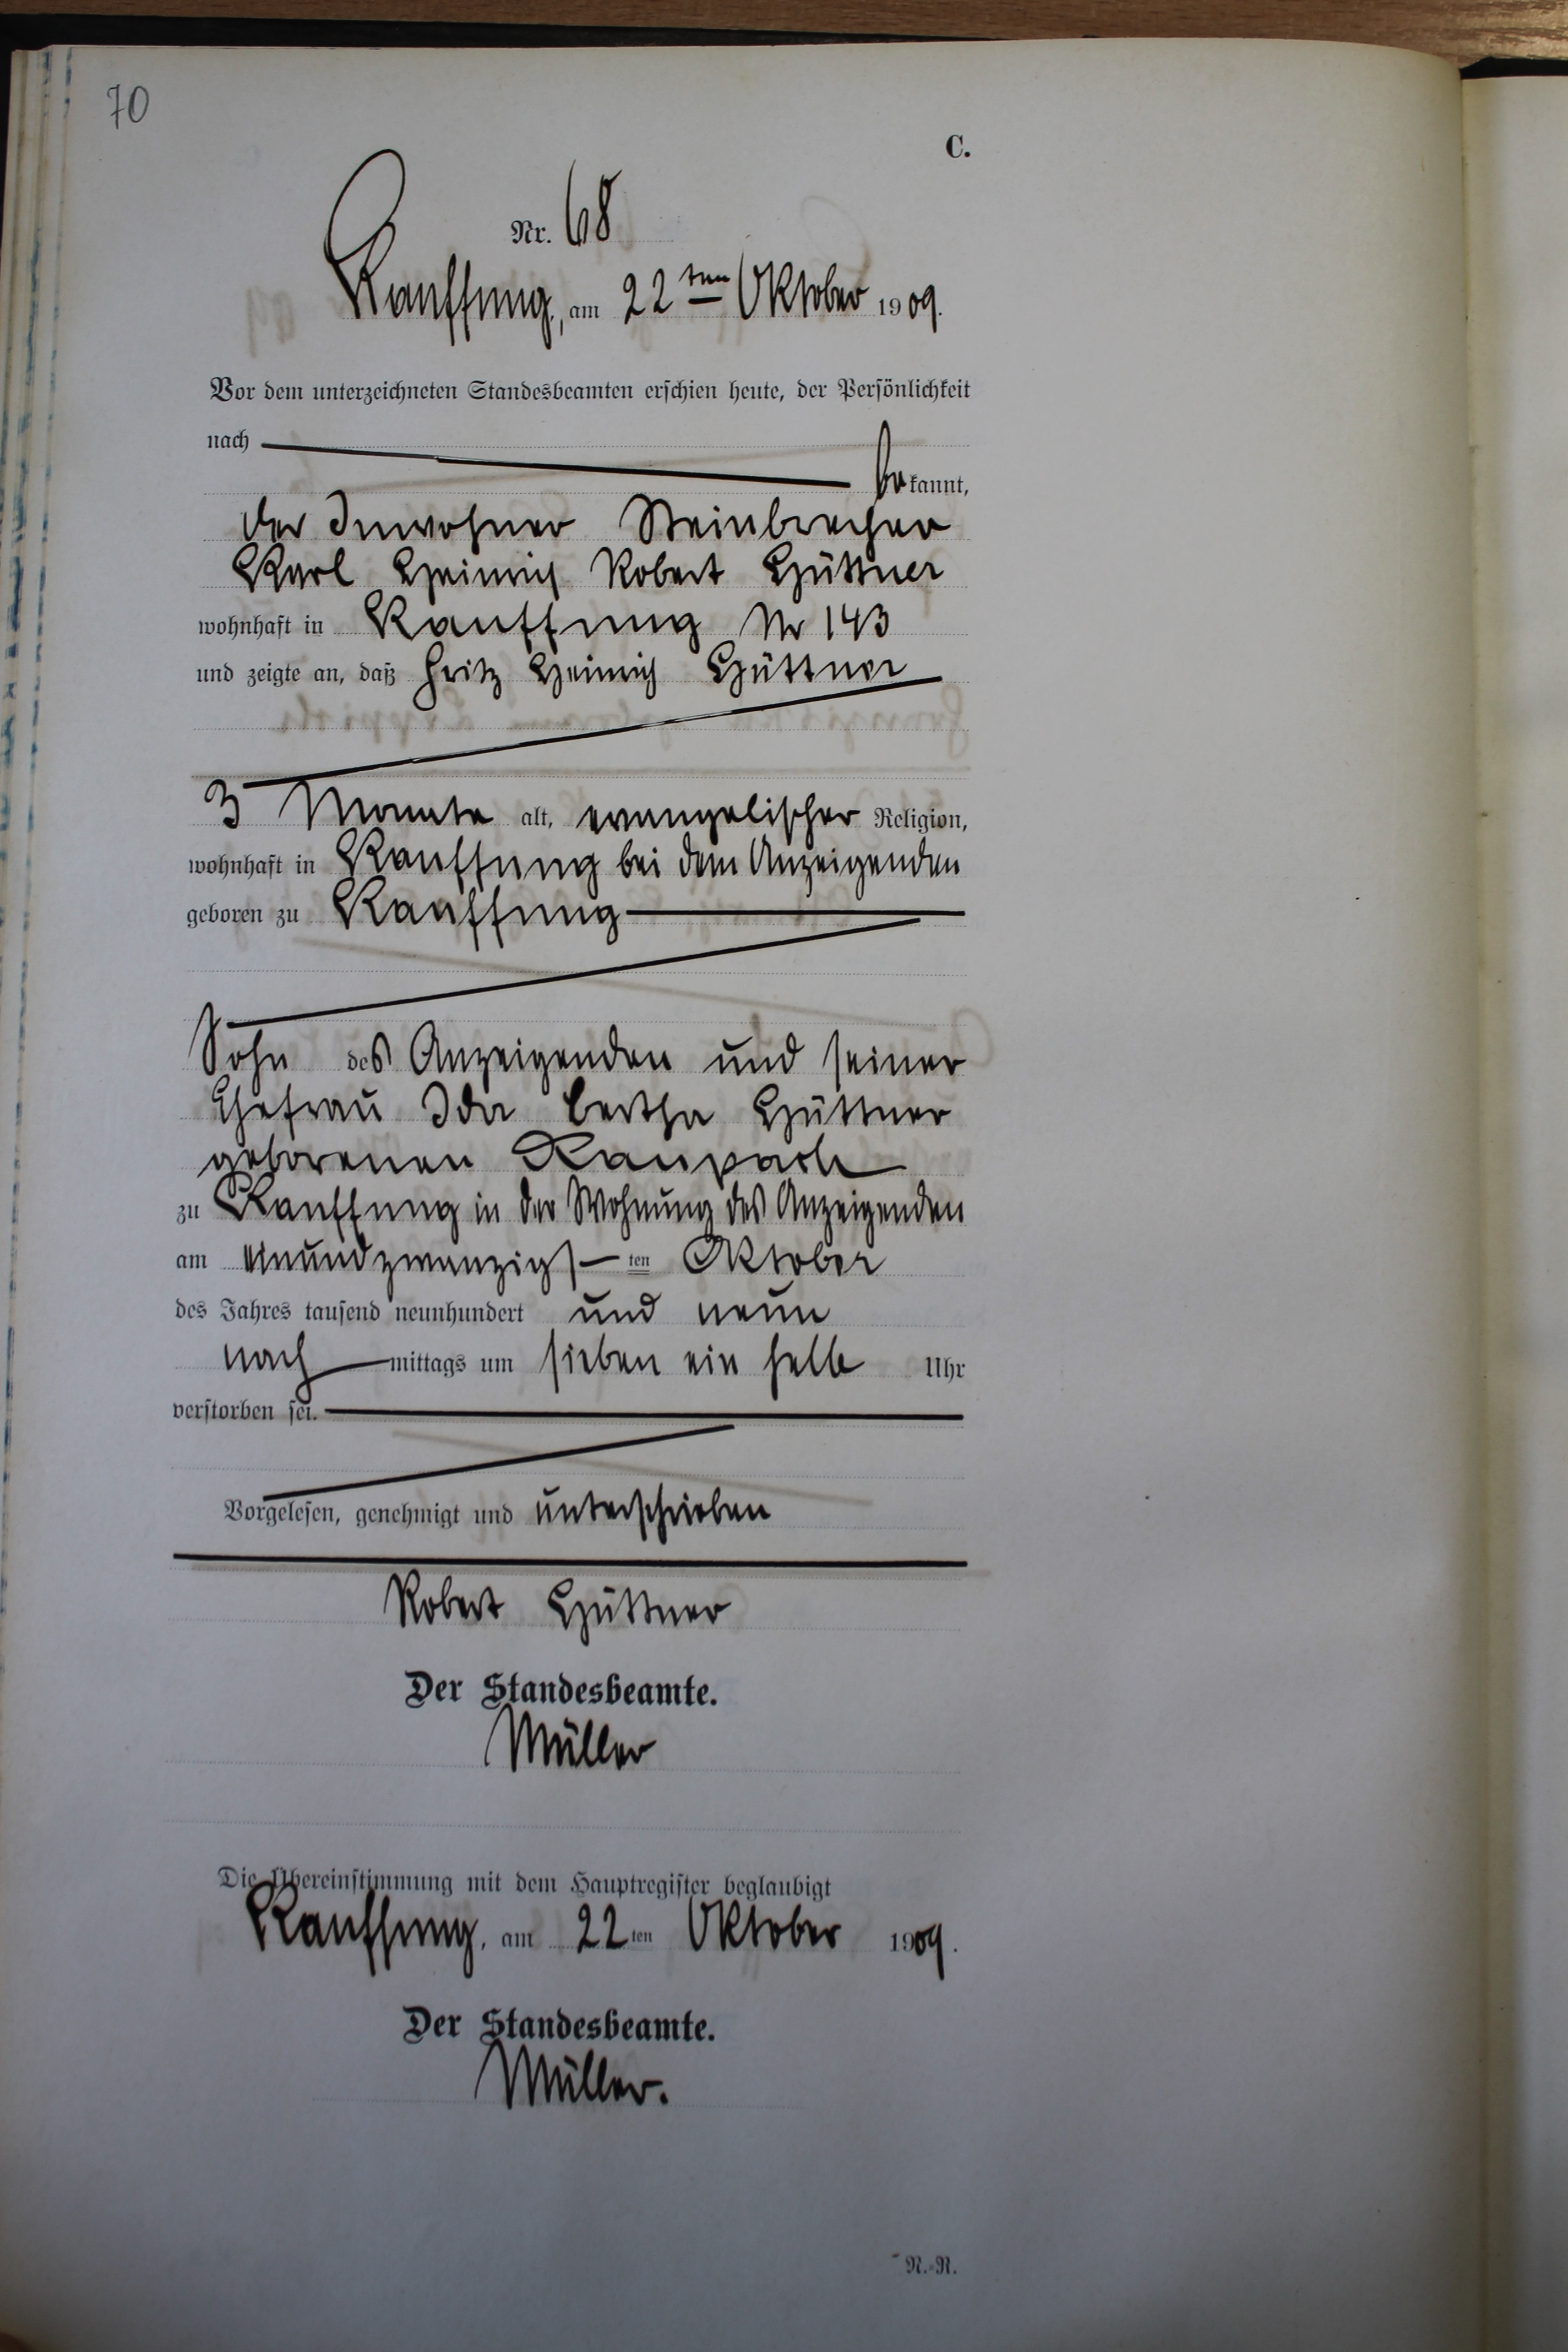 70
C.
Nr. 68
Kauffung, am 22ten Oktober 1909.
Vor dem unterzeichneten Standesbeamten erschien heute, der Persönlichkeit
nach
bekannt,
der Inwohner Steinbrecher
Karl Heinrich Robert Hüttner
wohnhaft in Kauffung Nr 143
und zeigte an, daß Fritz Heinrich Hüttner
3 Monate alt, evangelischer Religion,
wohnhaft in Kauffung bei dem Anzeigenden
geboren zu Kauffung
Sohn des Anzeigenden und seiner
Ehefrau Ida Bertha Hüttner
geborenen Raupach
zu Kauffung in der Wohnung des Anzeigenden
am einundzwanzigsten Oktober
des Jahres tausend neunhundert und neun
nachmittags um sieben ein halb Uhr
verstorben sei.
Vorgelesen, genehmigt und unterschrieben
Robert Hüttner
Der Standesbeamte.
Müller
Die Übereinstimmung mit dem Hauptregister beglaubigt
Kauffung, am 22ten Oktober 1909.
Der Standesbeamte.
Müller.
N.-N.